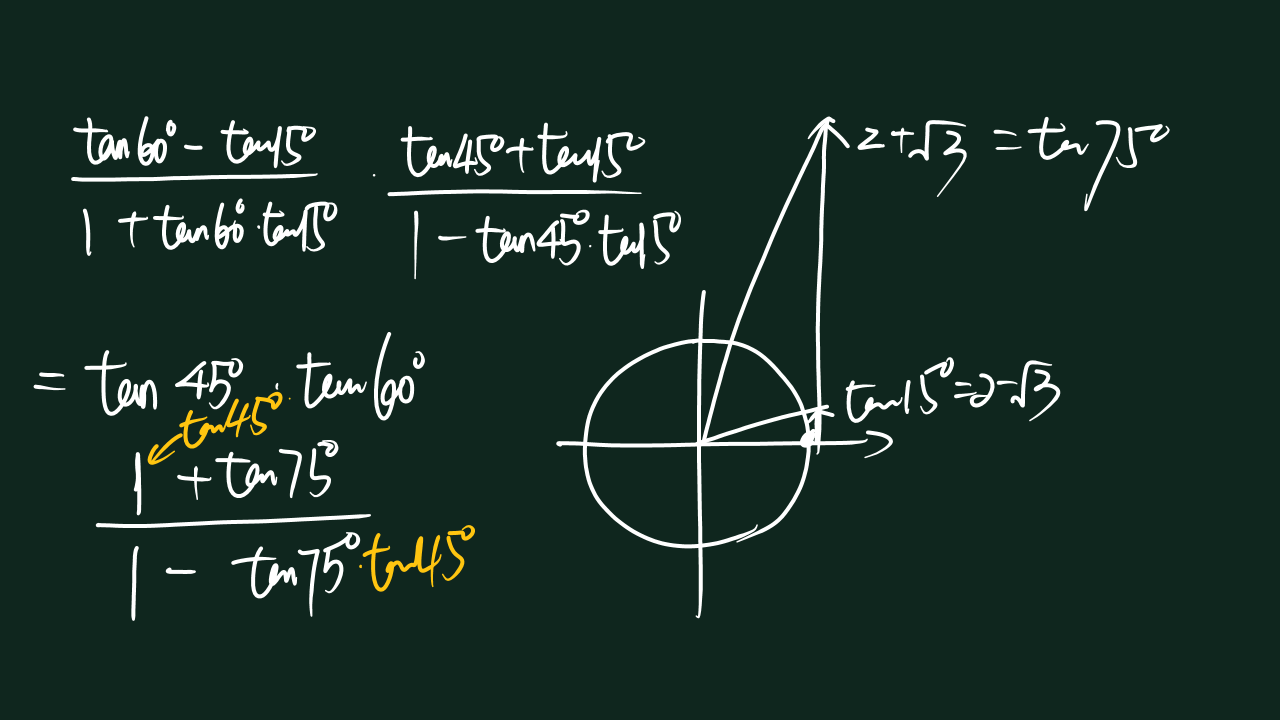 tan60° - tan15° / 1 + tan60°·tan15° · tan45° + tan15° / 1 - tan45°·tan15°
= tan45° · tan60°
tan45°
1 + tan75° / 1 - tan75°·tan45°
2+√3 = tan75°
tan15° = 2-√3